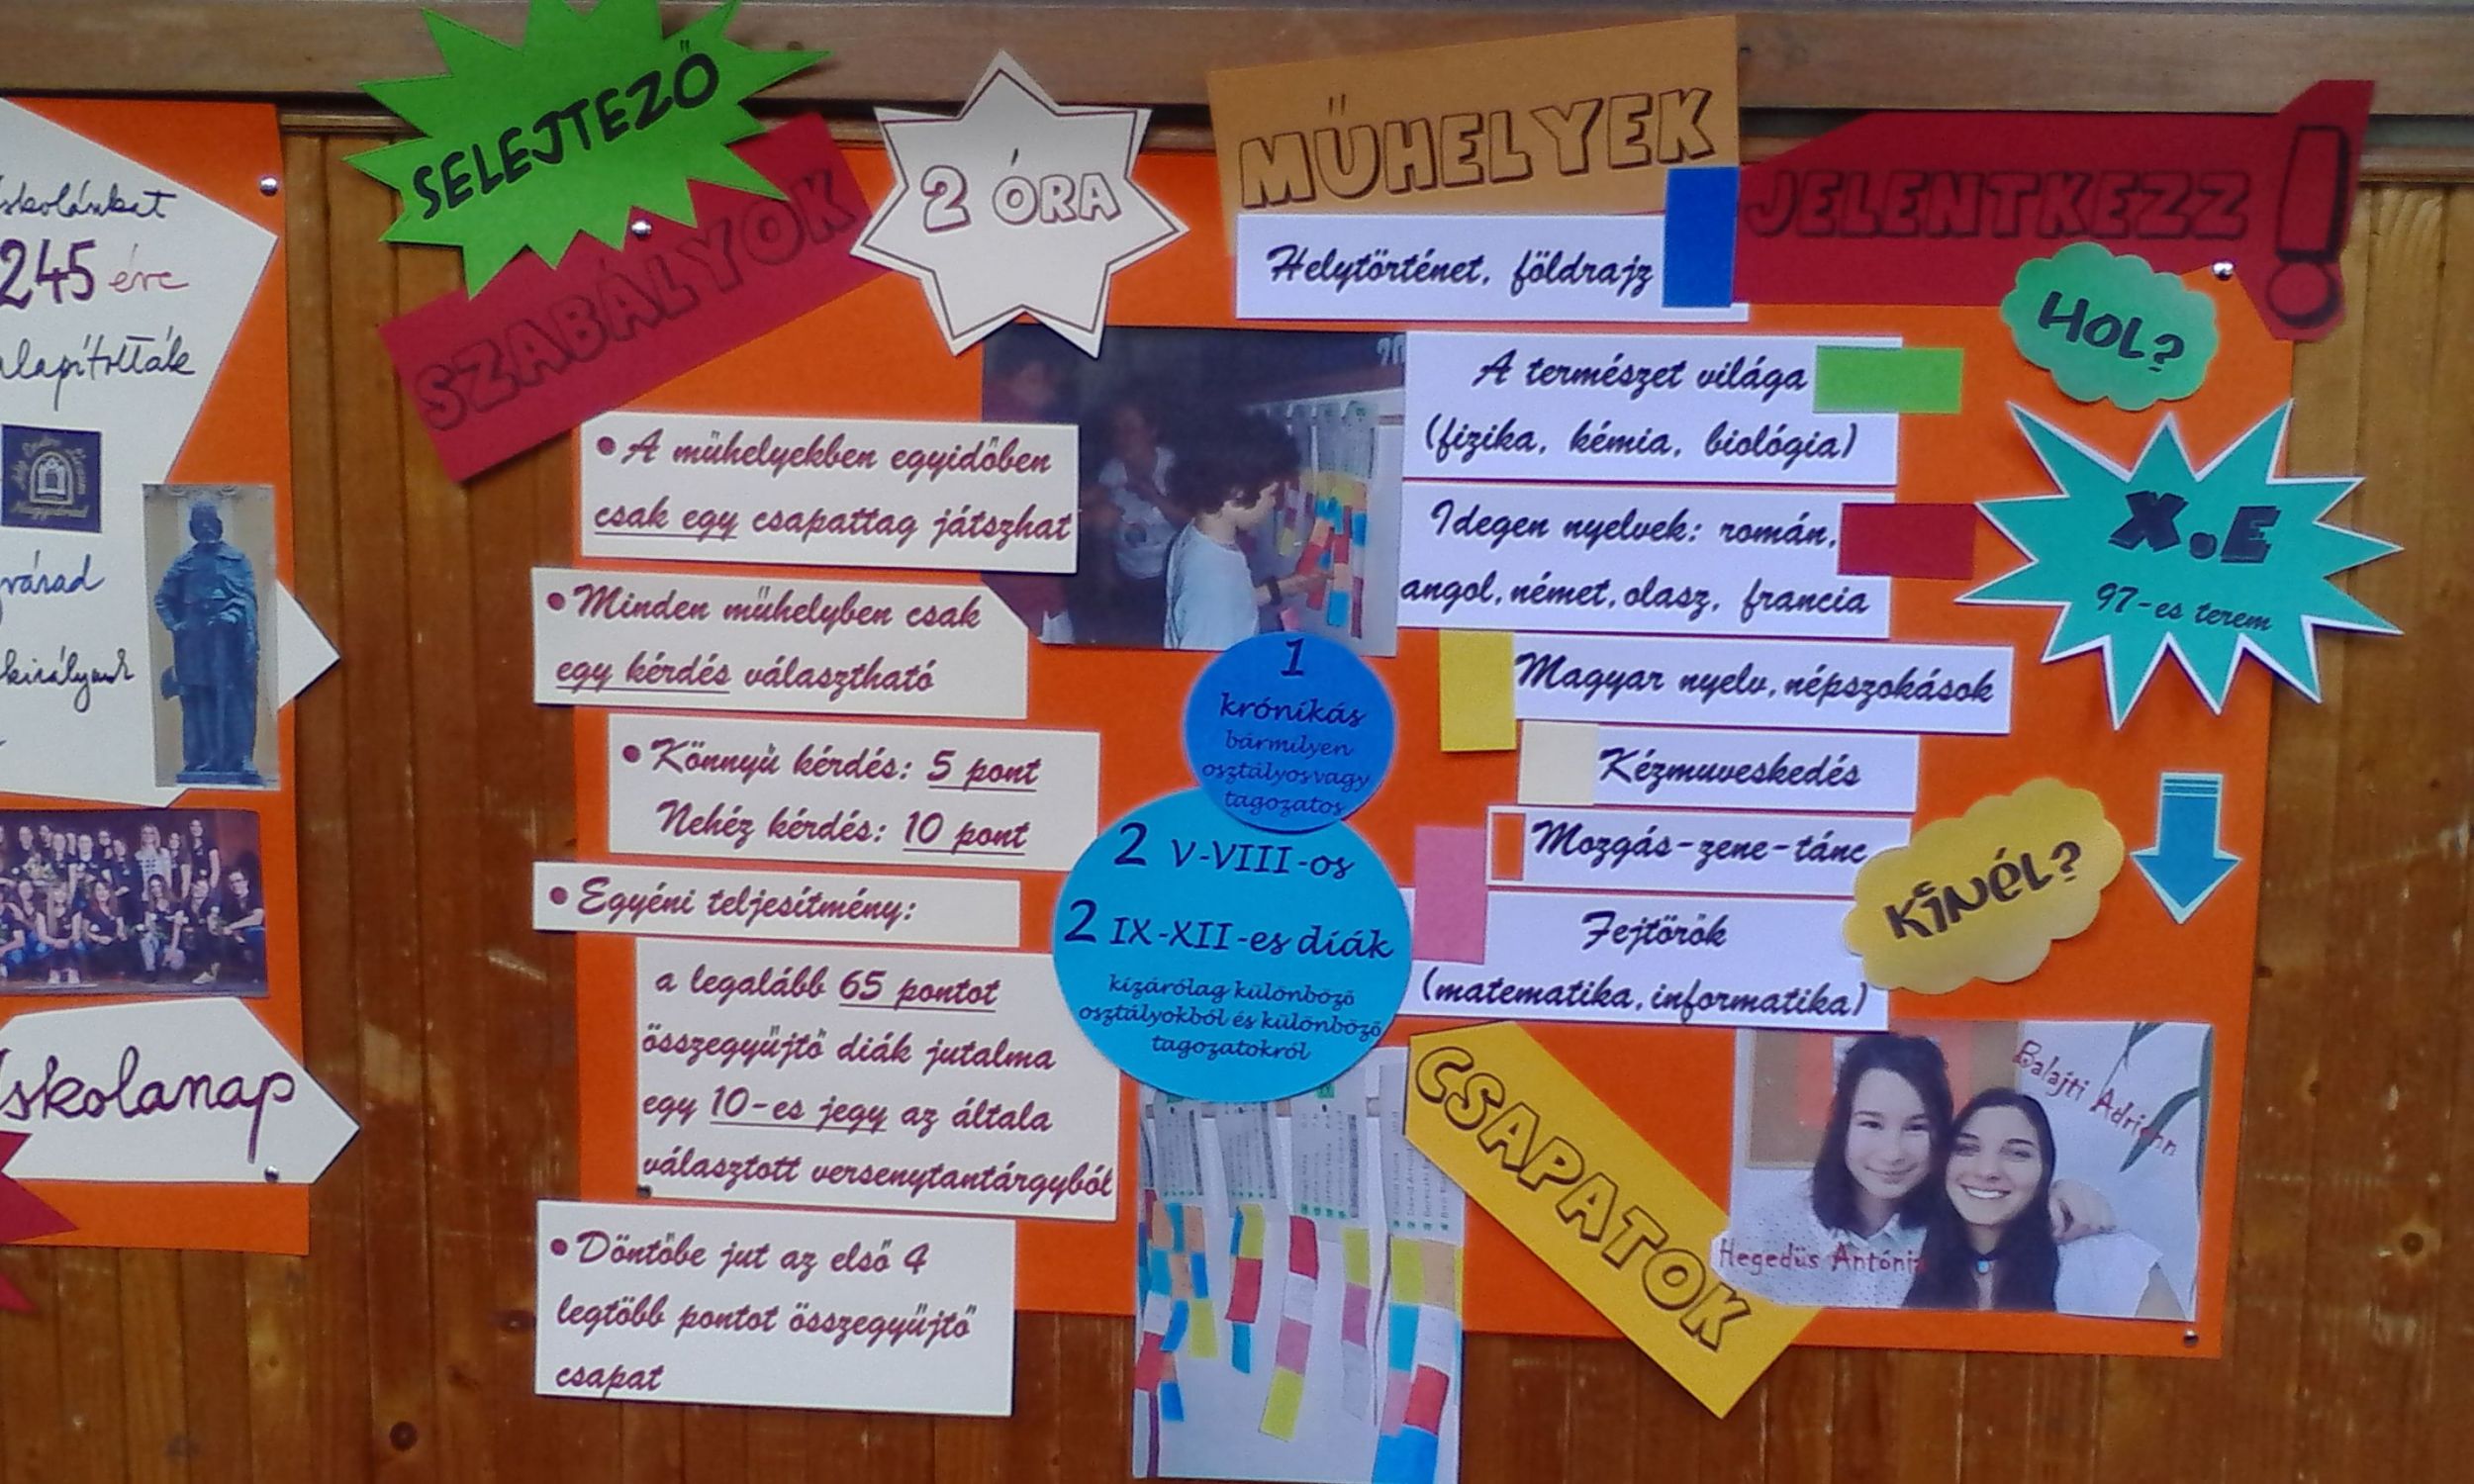 245 éve
alapították
várad
Iskolanap
SELEJTEZŐ
SZABÁLYOK
2 ÓRA
• A műhelyekben egyidőben
csak egy csapattag játszhat
• Minden műhelyben csak
egy kérdés választható
• Könnyű kérdés: 5 pont
Nehéz kérdés: 10 pont
• Egyéni teljesítmény:
a legalább 65 pontot
összegyűjtő diák jutalma
egy 10-es jegy az általa
választott versenytantárgyból
• Döntőbe jut az első 4
legtöbb pontot összegyűjtő
csapat
1
krónikás
bármilyen
osztályosvagy
tagozatos
2 V-VIII-os
2 IX-XII-es diák
kizárólag különböző
osztályokból és különböző
tagozatokról
MŰHELYEK
Helytörténet, földrajz
A természet világa
(fizika, kémia, biológia)
Idegen nyelvek: román,
angol, német, olasz, francia
Magyar nyelv, népszokások
Kézmuveskedés
Mozgás-zene-tánc
Fejtörők
(matematika, informatika)
CSAPATOK
JELENTKEZZ!
HOL?
X.E
97-es terem
KINÉL?
Balajti Adrienn
Hegedüs Antónia